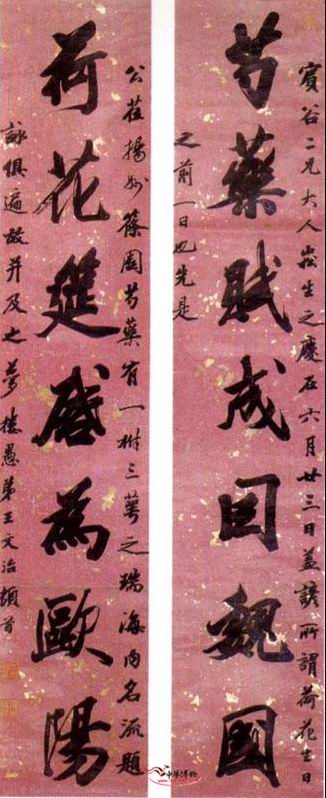 賓谷二兄大人崧生之慶在六月廿三日蓋諺所謂荷花生日
芍藥賦成囙魏國
之前一日也先是
公莅揚州篠園芍藥有一柎三萼之瑞海內名流題
荷花筵啓為歐陽
詠俱遍故并及之夢樓愚弟王文治頓首
中華博物